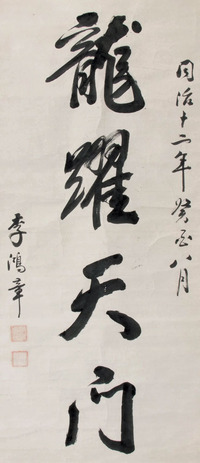 同治十二年癸酉八月
龍躍天门
李鴻章